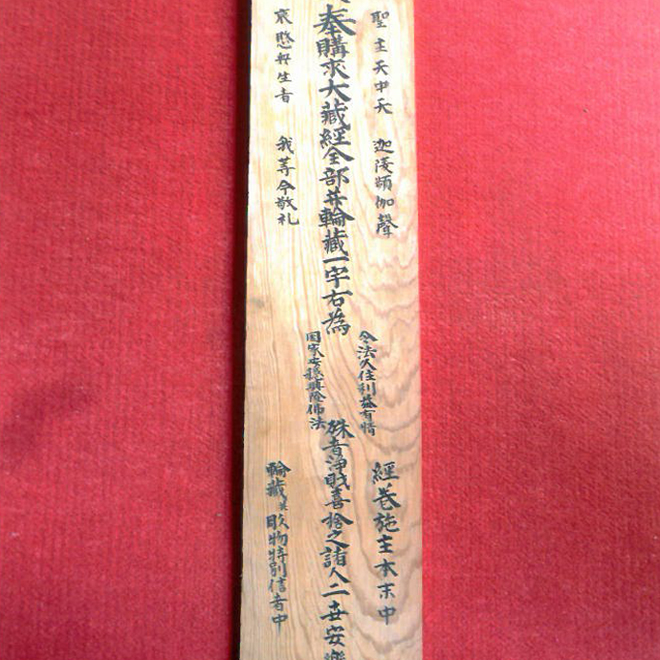 聖主天中天
迦陵頻伽聲
哀愍群生者
我等今敬礼
奉購求大藏經全部并輪藏一宇右為
令法久住利益有情
国家安穏興隆佛法
殊者浄財喜捨之諸人二世安楽
經巻施主本末中
輪藏并 物特別信者中